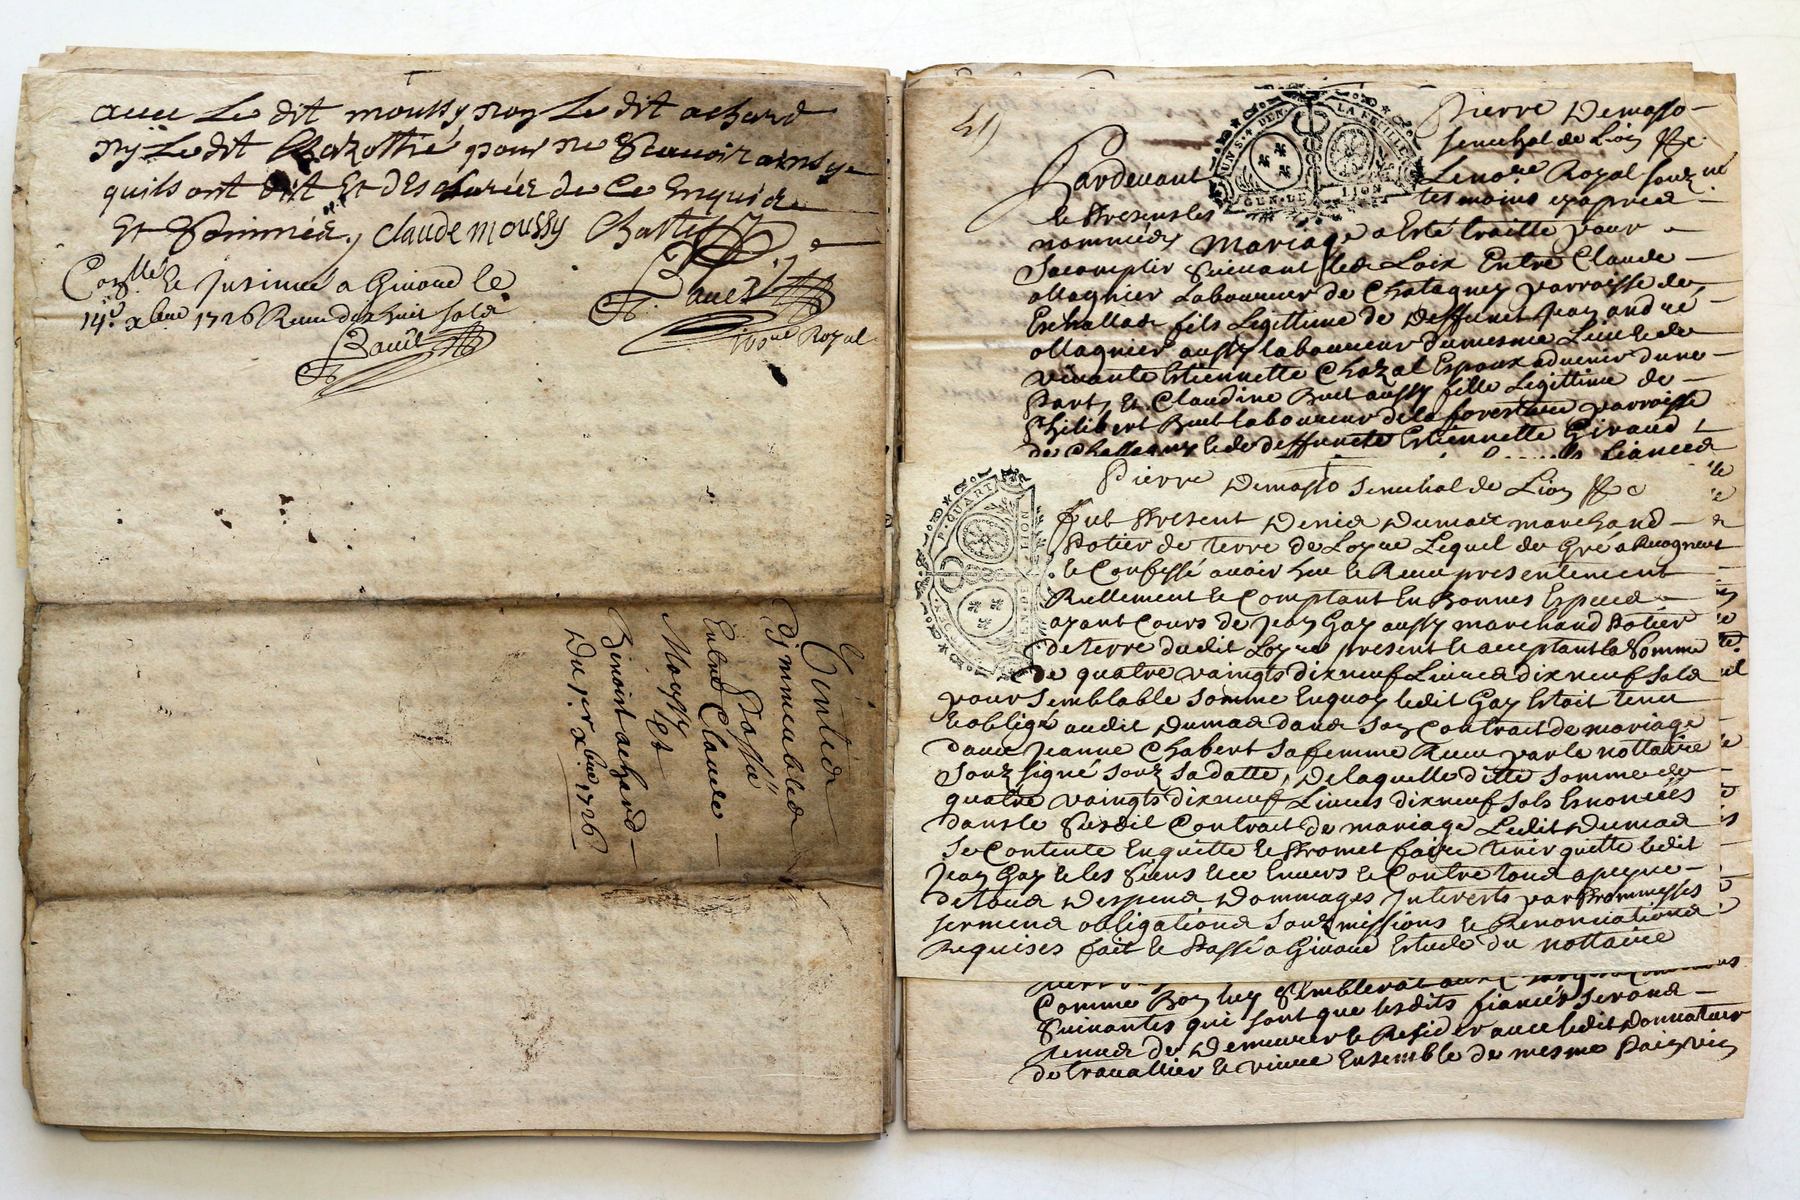 avec Le dit moussy non Le dit achard
ny Le dit Chazothé pour ne Scavoir ainsy
quils ont dit Et desclarée de Ce Enquis
Et Sommés, claude moussy
Con.llé Et Insinué a Givord le
14.e xbre 1726 Receu dixhuit sols
no.re Royal
Vente
dimmeubles
Passé
Entre Claude
Moussy Et
Benoist achard
Du 1.er xbre 1726
Pierre Demasso
senechal de Lion
Pardevant Le no.re Royal souz né
UN S. 4 DEN. LA FEUILLE
GEN. DE LION
Et Presens les tesmoins exaprès
nommés, Mariage a Esté traitté pour
Sacomplir Suivant Loix Entre Claude
ollagnier Laboureur de Chatagney parroisse des
Eschallas fils Legittime de deffunct Jean andré
ollagnier aussy laboureur du mesme Lieu Et de
vivante Estiennette Chazal Espoux advenir dune
Part, Et Claudine Buet aussy fille Legittime de
Philibert Buet laboureur de la parroisse
de Et de deffuncte Estiennette Giraud
fiancés
Pierre Demasso Senechal de Lion
P. QUART
GEN. DE LION
Fut Present Denis Dumas marchand
Potier de terre de Loyre Lequel de Gré a Recogneut
Et Confessé avoir heu Et Receu presentement
Reellement Et Comptant En Bonnes Especes
ayant Cours de Jean Gay aussy marchand Potier
de terre dudit Loyre present Et acceptant la Somme
de quatre vaingts dixneuf Livres dixneuf Sols
pour Semblable Somme Enquoy ledit Gay Estoit tenu
Et obligé audit Dumas dans son Contrait de mariage
davec Jeanne Chabert sa femme Receu par le nottaire
Souz signé souz sa datte, De laquelle ditte Somme de
quatre vaingts dixneuf Livres dixneuf sols Enoncées
dans le Susdit Contrait de mariage Ledit Dumas
Se Contente Enquitte Et Promet faire tenir quitte ledit
Jean Gay Et les Siens Envers Et Contre tous apeyne
de tous Despens Dommages Interets par Prommesses
sermens obligations Souzmissions Et Renonciations
Requises fait Et Passé a Givord Estude du nottaire
Comme Bon luy Sembleroit aux
Suivantes qui sont que lesdits fiancés seront
tenus de Demeurer Et Resider avec ledit Donnateur
de travallier Et vivre Ensemble de mesme Pain vin